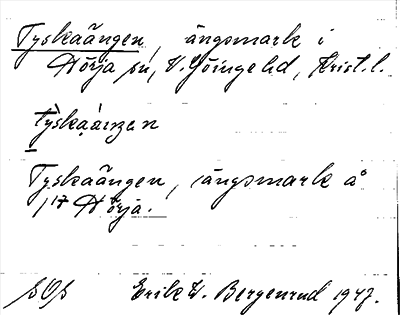 Tyskaängen, ängsmark i
Hörja sn, V. Göinge hd, Krist. l.
Tyskaängen, ängsmark å
1/17 Hörja.
SOS Erik W. Bergenrud 1947.